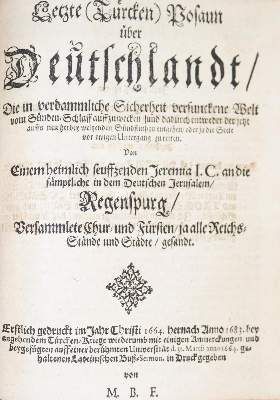 Letzte (Türcken) Posaun
über
Deutschlandt/
Die in verdammliche Sicherheit versunckene Welt
vom Sünden-Schlaff auffzuwecken /und dadurch entweder der jetzt
auffs neu herbey
oder je die Seele
vor ewigen Untergang zu retten.
Von
Einem heimlich seuffzenden Jeremia I. C. an die
sämptliche in dem Deutschen Jerusalem/
Regenspurg/
Versammlete Chur- und Fürsten/ja alle Reichs-
Stände und Städte/ gesandt.
Erstlich gedruckt im Jahr Christi 1664. hernach Anno 1683. bey
angehendem Türcken-Kriege wiederumb mit einigen Anmerckungen und
beygefügten auff einer berühmten Universität d. 31. Martii anno 1664. ge-
haltenen Lateinischen Buß-Sermon. in Druck gegeben
von
M. B. F.